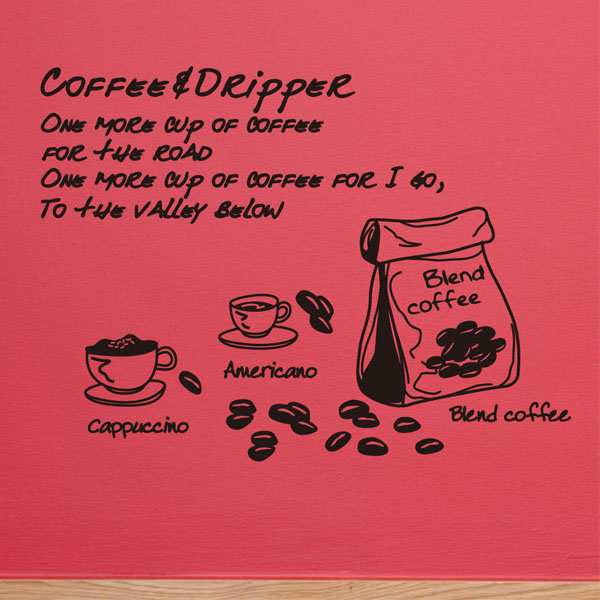 Coffee&Dripper
One more cup of coffee
for the road
One more cup of coffee for I go,
To the valley below
Blend
coffee
Americano
Cappuccino
Blend coffee